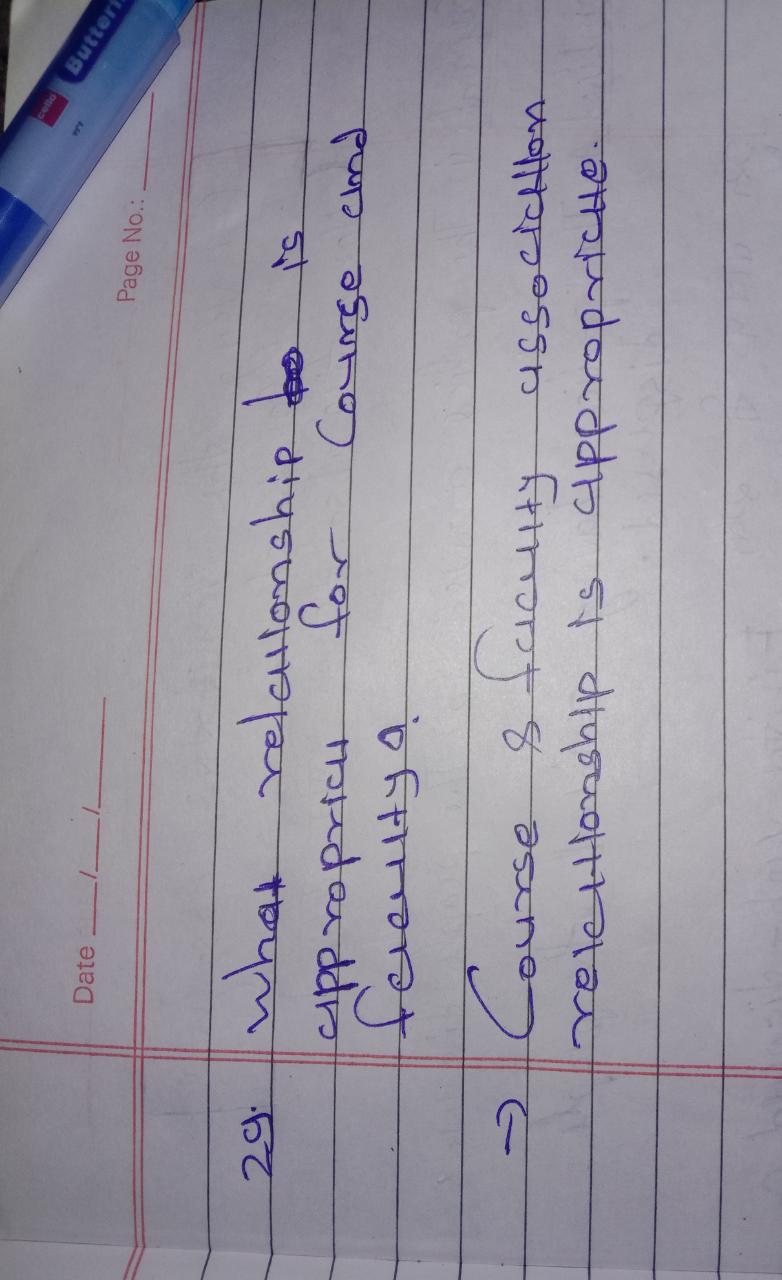 Date __/__/__ Page No.: ___
29. What relationship is
appropriat for Course and
faculty?
⇒ Course & faculty association
relationship is appropriate.
cello
Butter